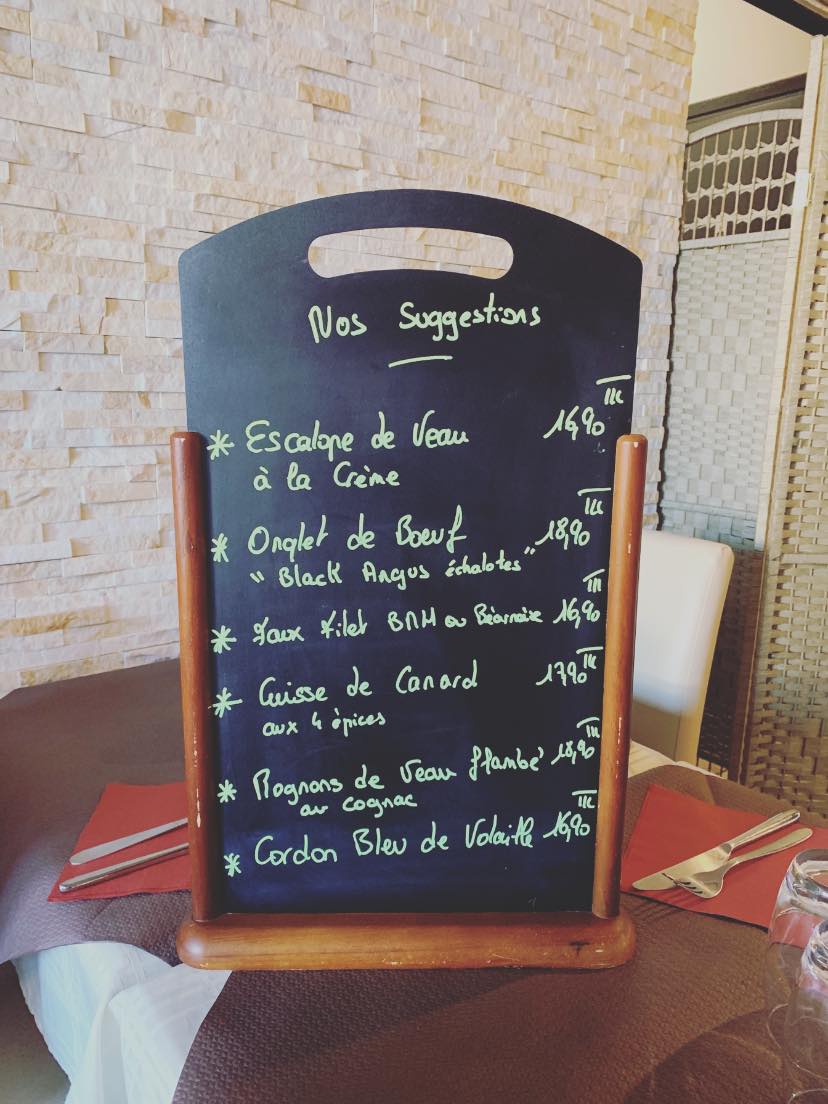 Nos Suggestions
* Escalope de Veau 16,90
à la Crème
* Onglet de Boeuf 18,90
" Black Angus échalotes "
* Faux Filet BAM ou Béarnaise 16,90
* Cuisse de Canard 17,90
aux 4 épices
* Rognons de Veau flambé 18,90
au cognac
* Cordon Bleu de Volaille 16,90